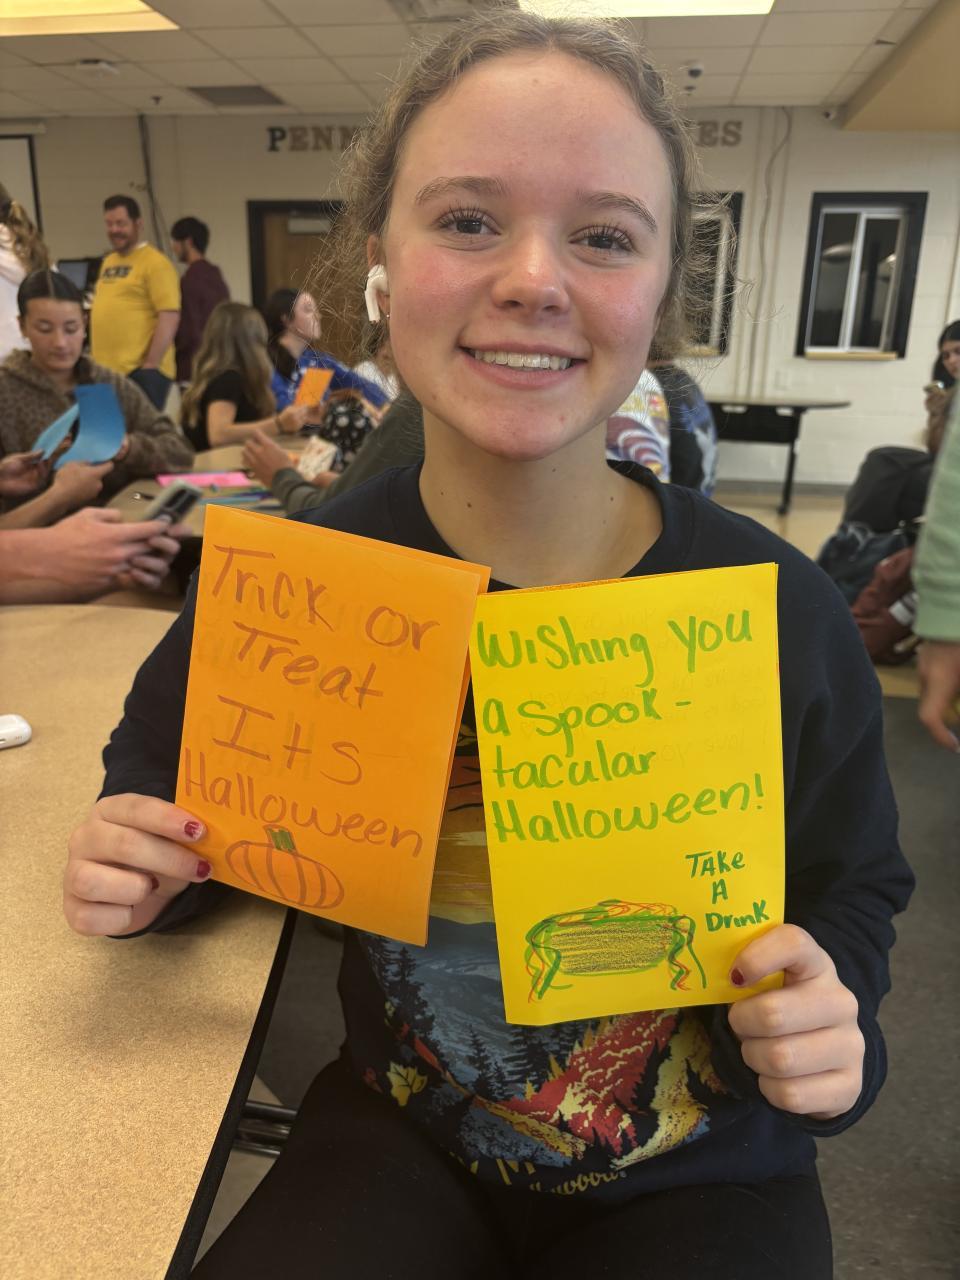 PENN
ES
Trick or
Treat
Its
Halloween
Wishing you
a spook-
tacular
Halloween!
TAKE
A
Drink